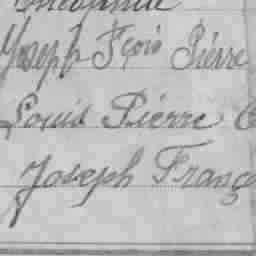 Joseph Fçois Pierre
Louis Pierre
Joseph Franç